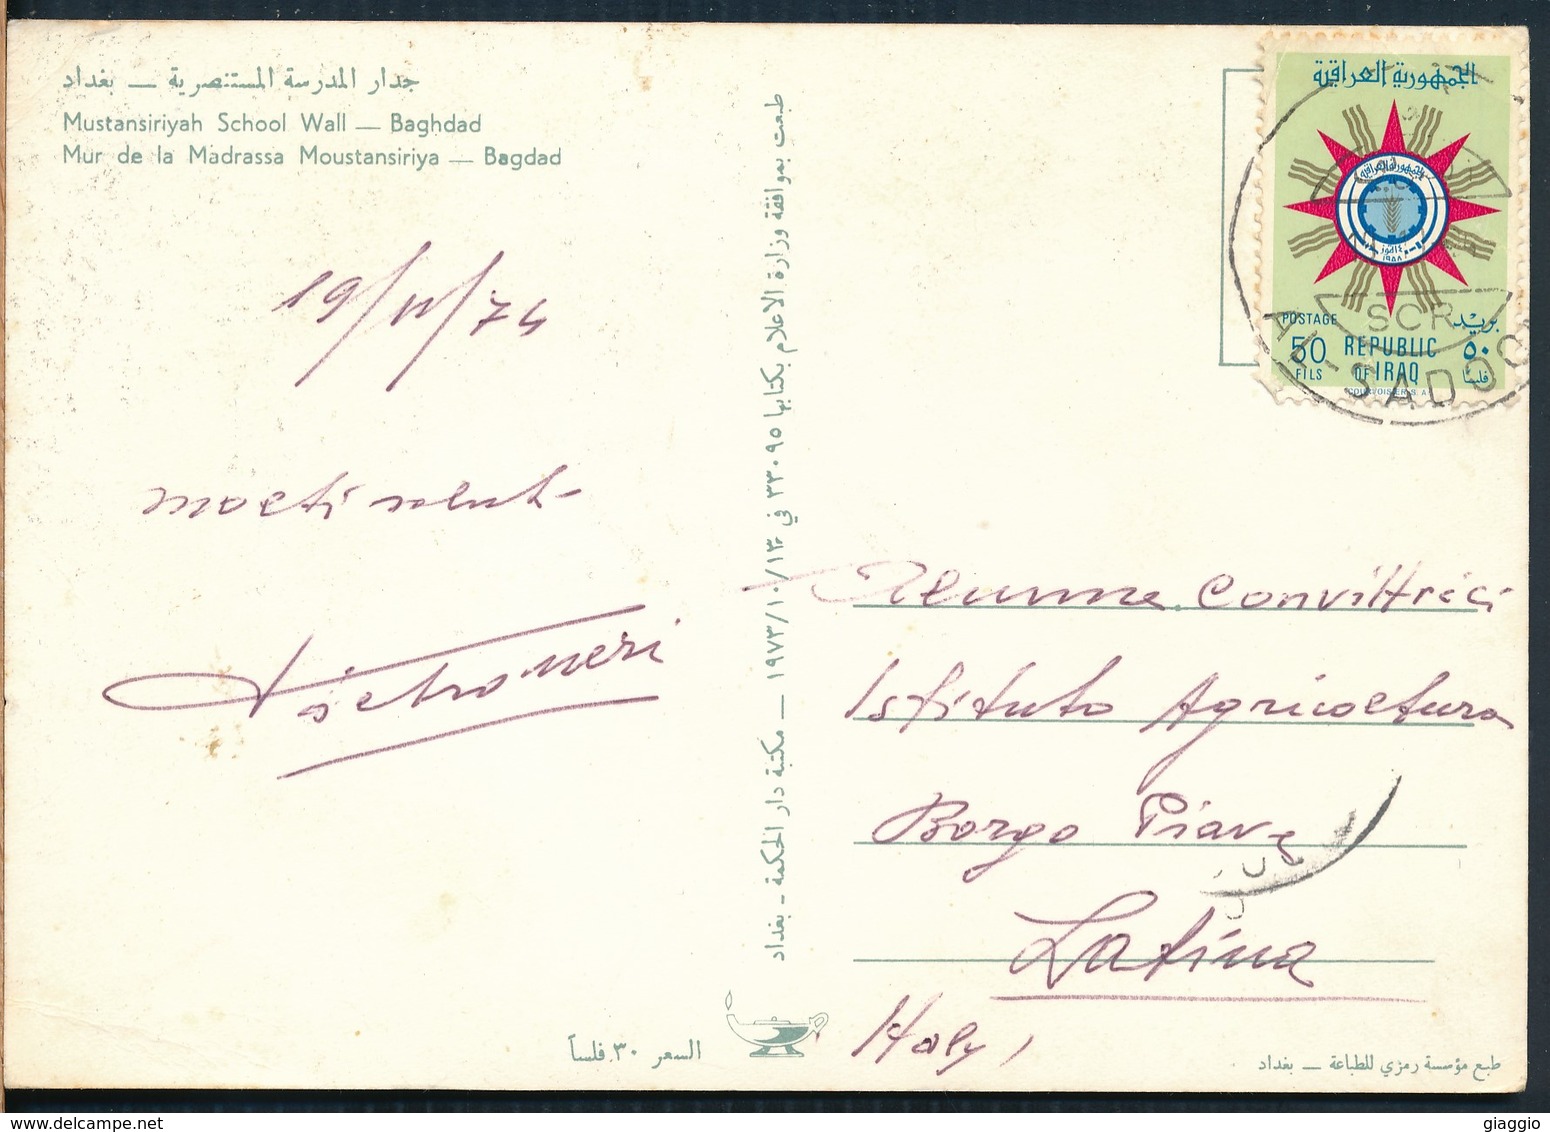 جدار المدرسة المستنصرية — بغداد
Mustansiriyah School Wall — Baghdad
Mur de la Madrassa Moustansiriya — Bagdad
19/11/74
molti saluti
Pietro Neri
طبعت بموافقة وزارة الاعلام بكتابها ٣٣٠٩٥ في ١٩٧٣/١٠/١٣ — مكتبة دار الحكمة - بغداد
السعر ٣٠ فلساً
الجمهورية العراقية
الجمهورية العراقية
١٤ تموز
١٩٥٨
POSTAGE بريد
50 REPUBLIC ٥٠
FILS OF IRAQ فلسا
COURVOISIER S.A.
SCR
AL-SADOON
Alunne Convittrici
Istituto Agricoltura
Borgo Piave
Latina
Italy
طبع مؤسسة رمزي للطباعة — بغداد
giaggio